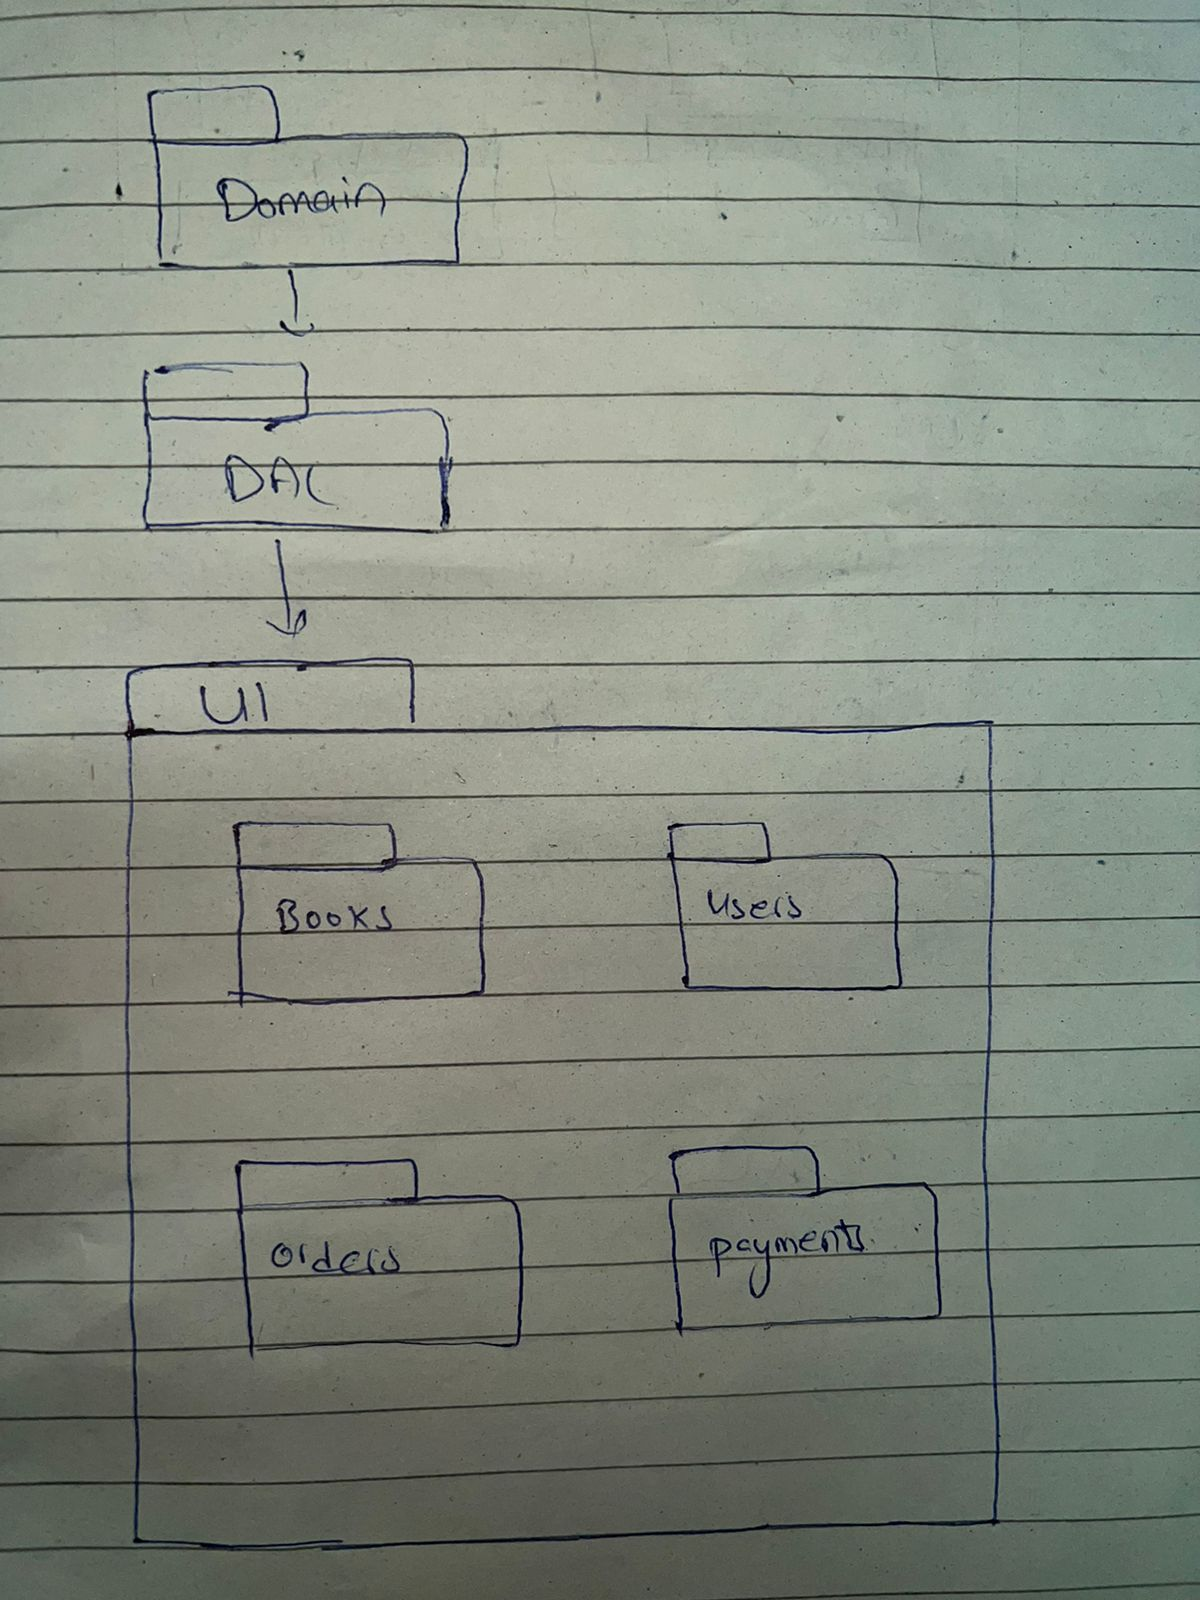 Domain
DAL
UI
Books
Users
orders
payments